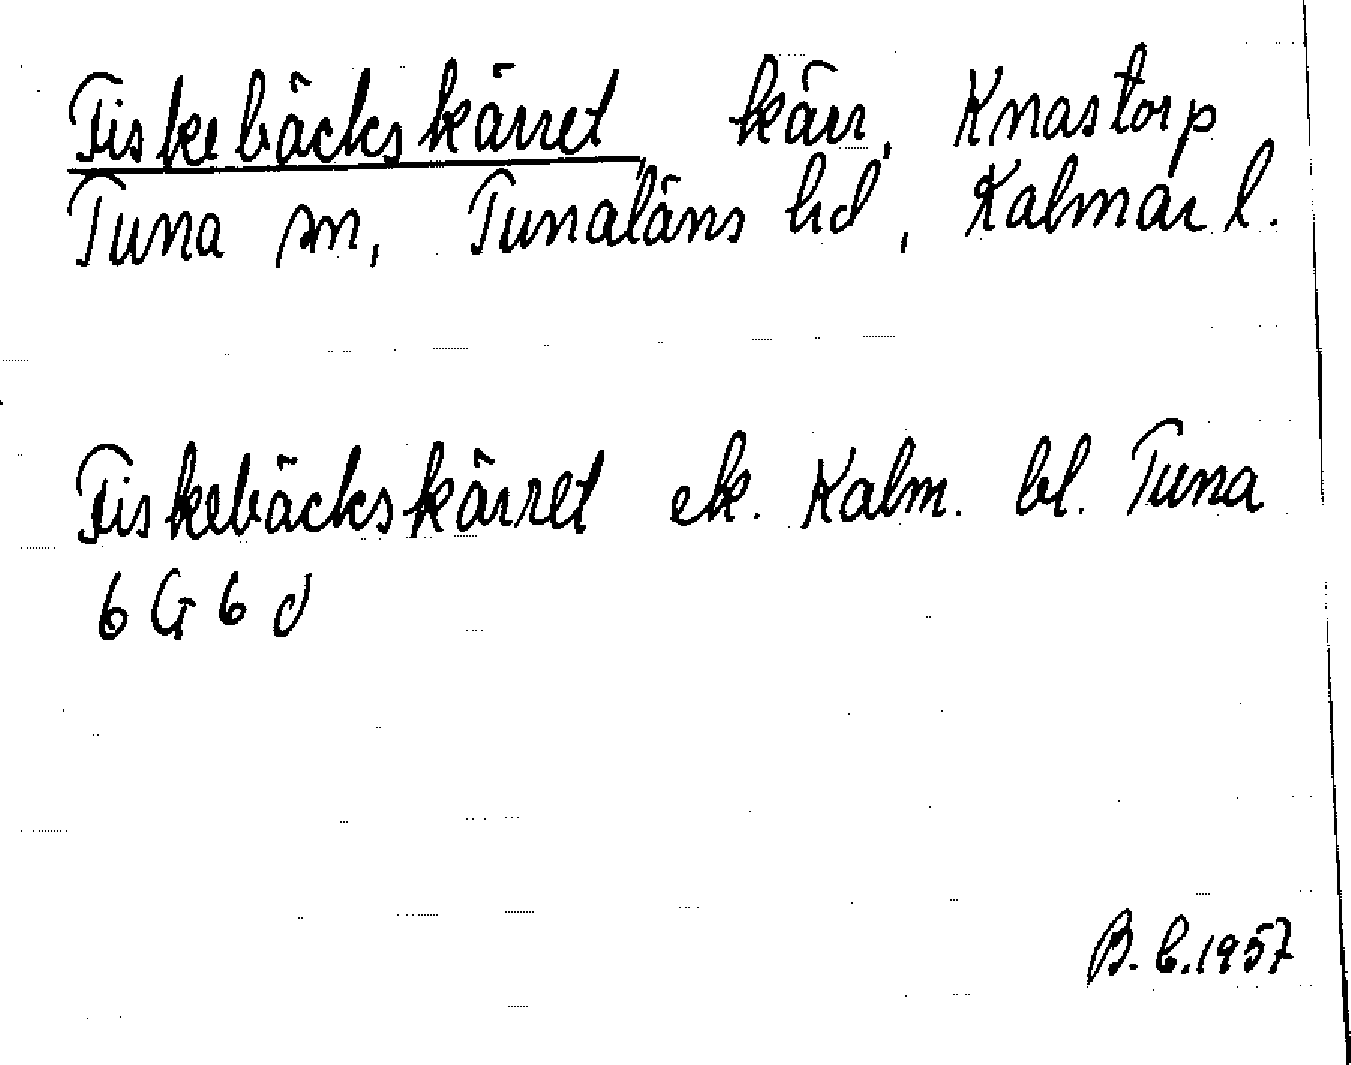 Fiskebäckskärret kärr, Knastorp
Tuna sn, Tunaläns hd, Kalmar l.
Fiskebäckskärret ek. Kalm. bl. Tuna
6 G 6 d
B. C. 1957